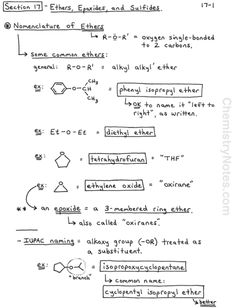 Section 17 - Ethers, Epoxides, and Sulfides. 17-1
Nomenclature of Ethers
R-O-R' = oxygen single-bonded
to 2 carbons.
Some common ethers:
general: R-O-R' = alkyl alkyl' ether
ex: O-CH CH3 CH3 = phenyl isopropyl ether
OK to name it "left to
right", as written.
ex: Et-O-Et = diethyl ether
ex: O = tetrahydrofuran = "THF"
ex: O = ethylene oxide = "oxirane"
** an epoxide = a 3-membered ring ether.
also called "oxiranes".
- IUPAC naming = alkoxy group (-OR) treated as
a substituent.
ex: O = isopropoxycyclopentane
"branch"
common name:
cyclopentyl isopropyl ether
better
ChemistryNotes.com